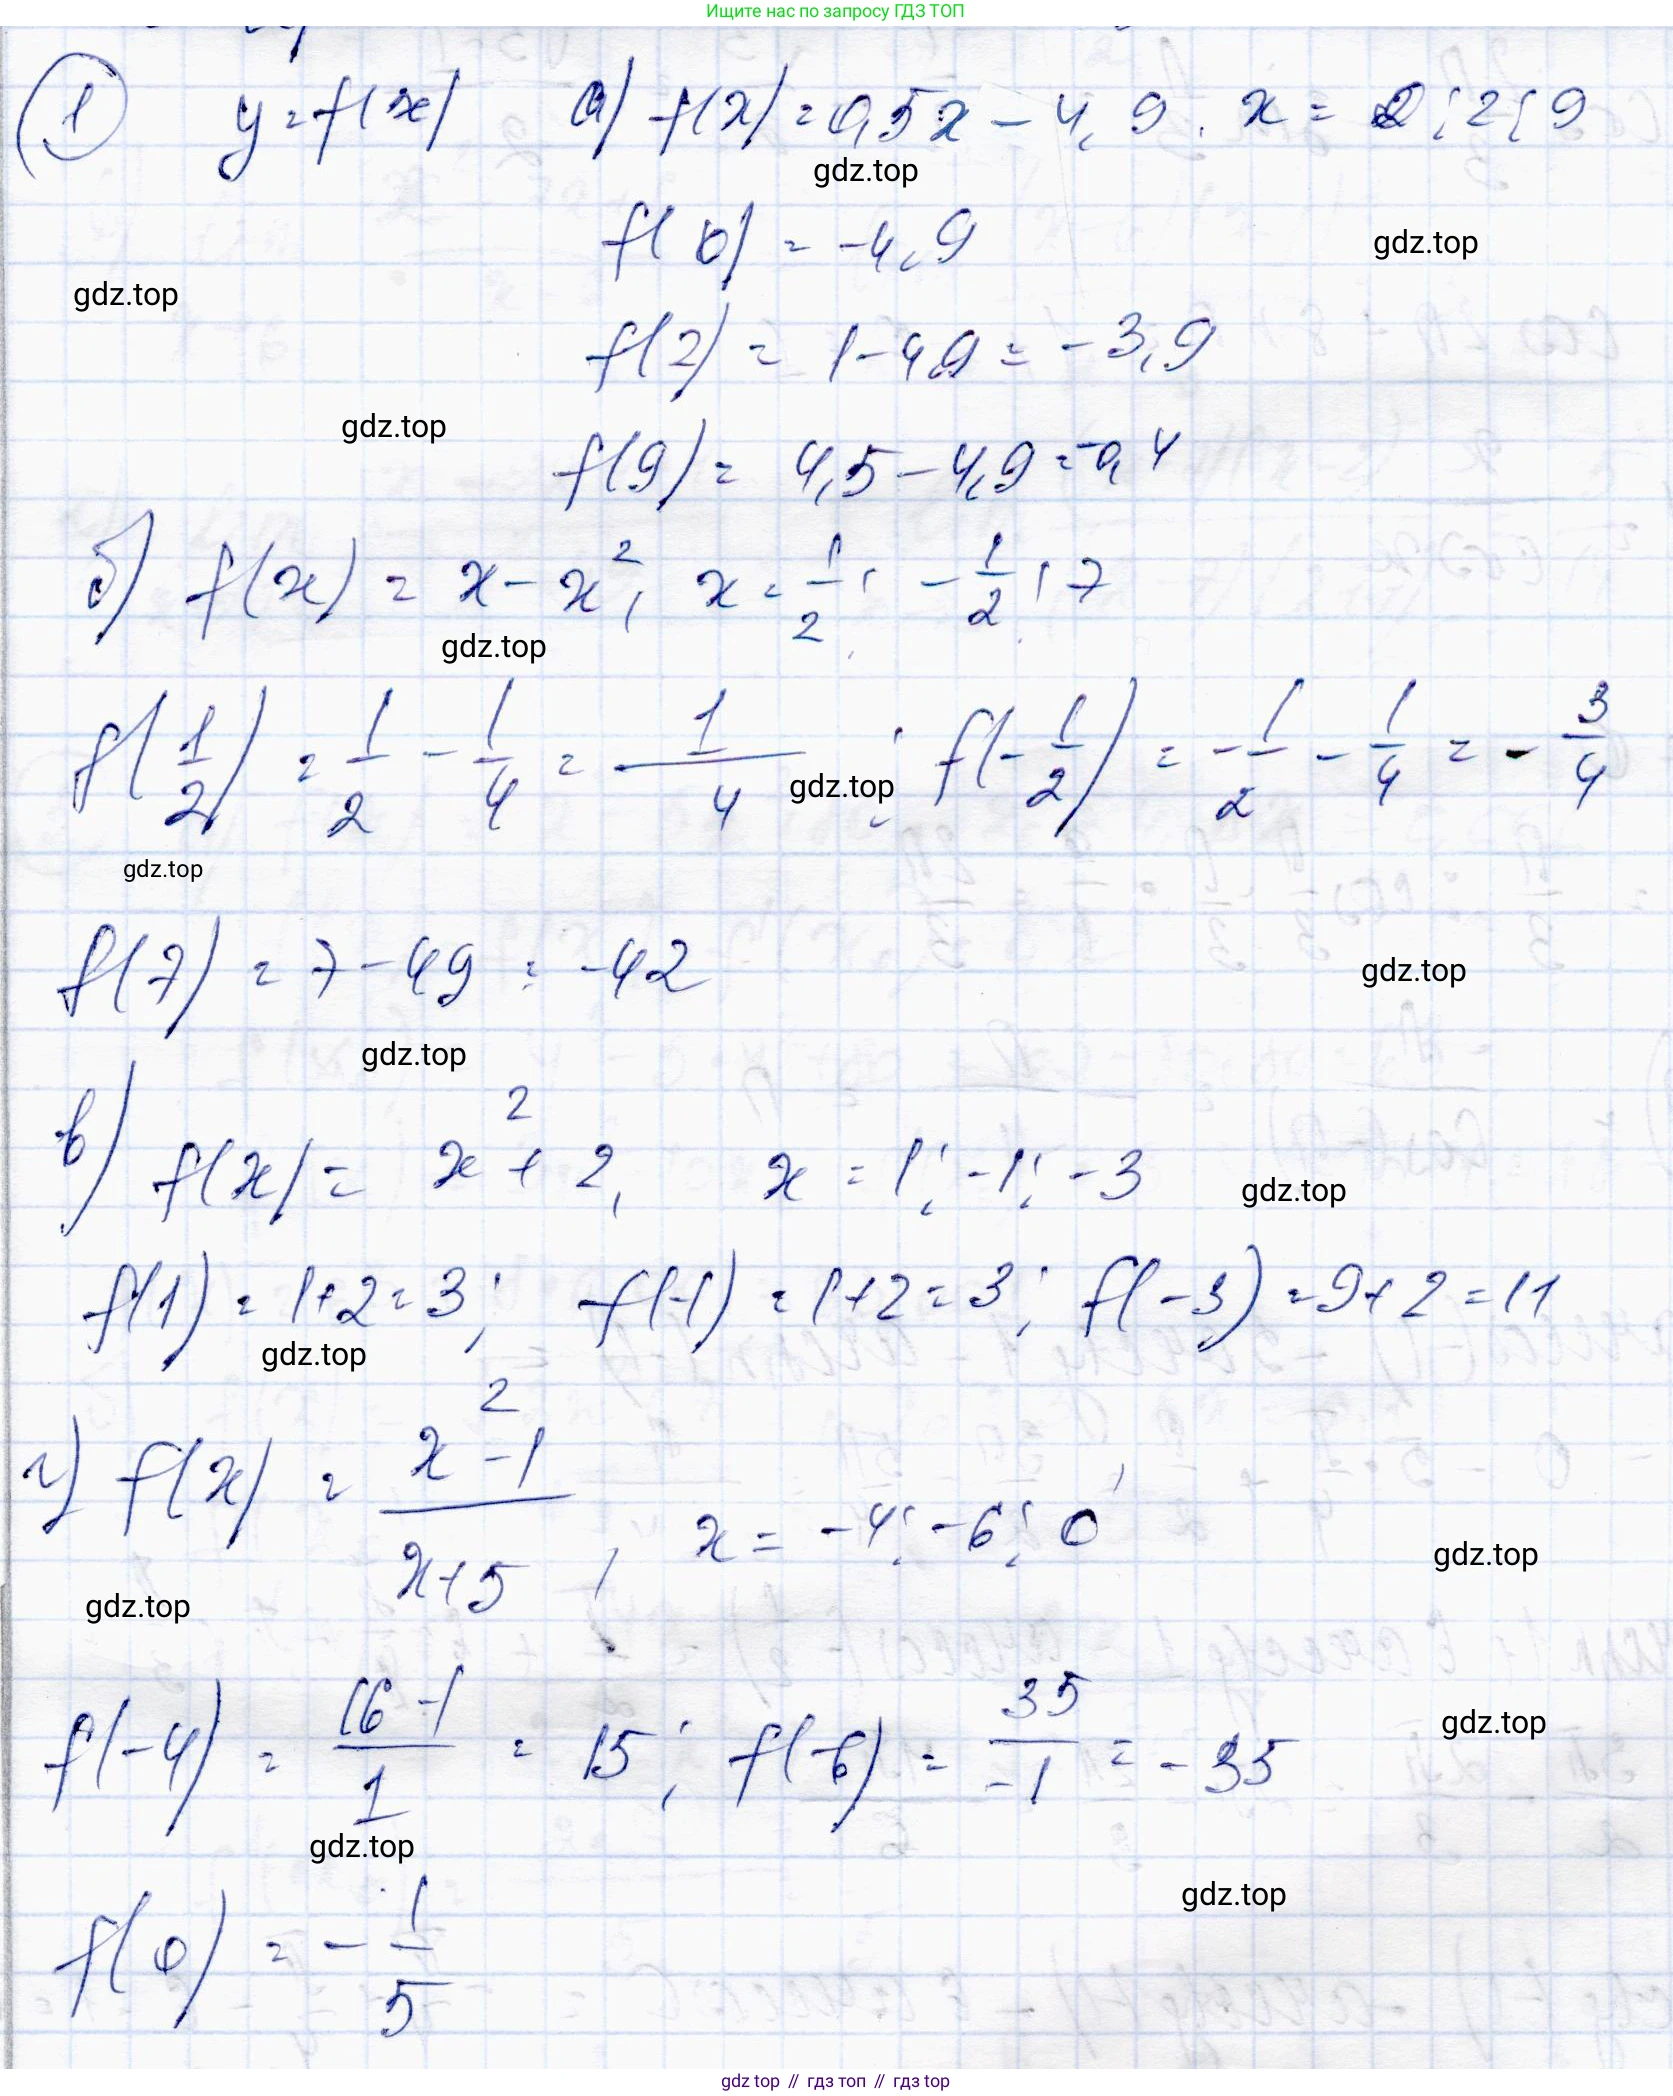 Ищите нас по запросу ГДЗ ТОП
1 y = f(x) а) f(x) = 0,5x - 4,9, x = 0; 2; 9
gdz.top
f(0) = -4,9
gdz.top
gdz.top
f(2) = 1 - 4,9 = -3,9
gdz.top
f(9) = 4,5 - 4,9 = -0,4
б) f(x) = x - x², x = 1/2; -1/2; 7
gdz.top
f(1/2) = 1/2 - 1/4 = 1/4; f(-1/2) = -1/2 - 1/4 = -3/4
gdz.top
gdz.top
f(7) = 7 - 49 = -42
gdz.top
gdz.top
в) f(x) = x² + 2, x = 1; -1; -3
gdz.top
f(1) = 1+2 = 3; f(-1) = 1+2 = 3; f(-3) = 9+2 = 11
gdz.top
г) f(x) = (x² - 1)/(x + 5), x = -4; -6; 0
gdz.top
gdz.top
f(-4) = (16 - 1)/1 = 15; f(-6) = 35/-1 = -35
gdz.top
gdz.top
gdz.top
f(0) = -1/5
gdz top // гдз топ // гдз top